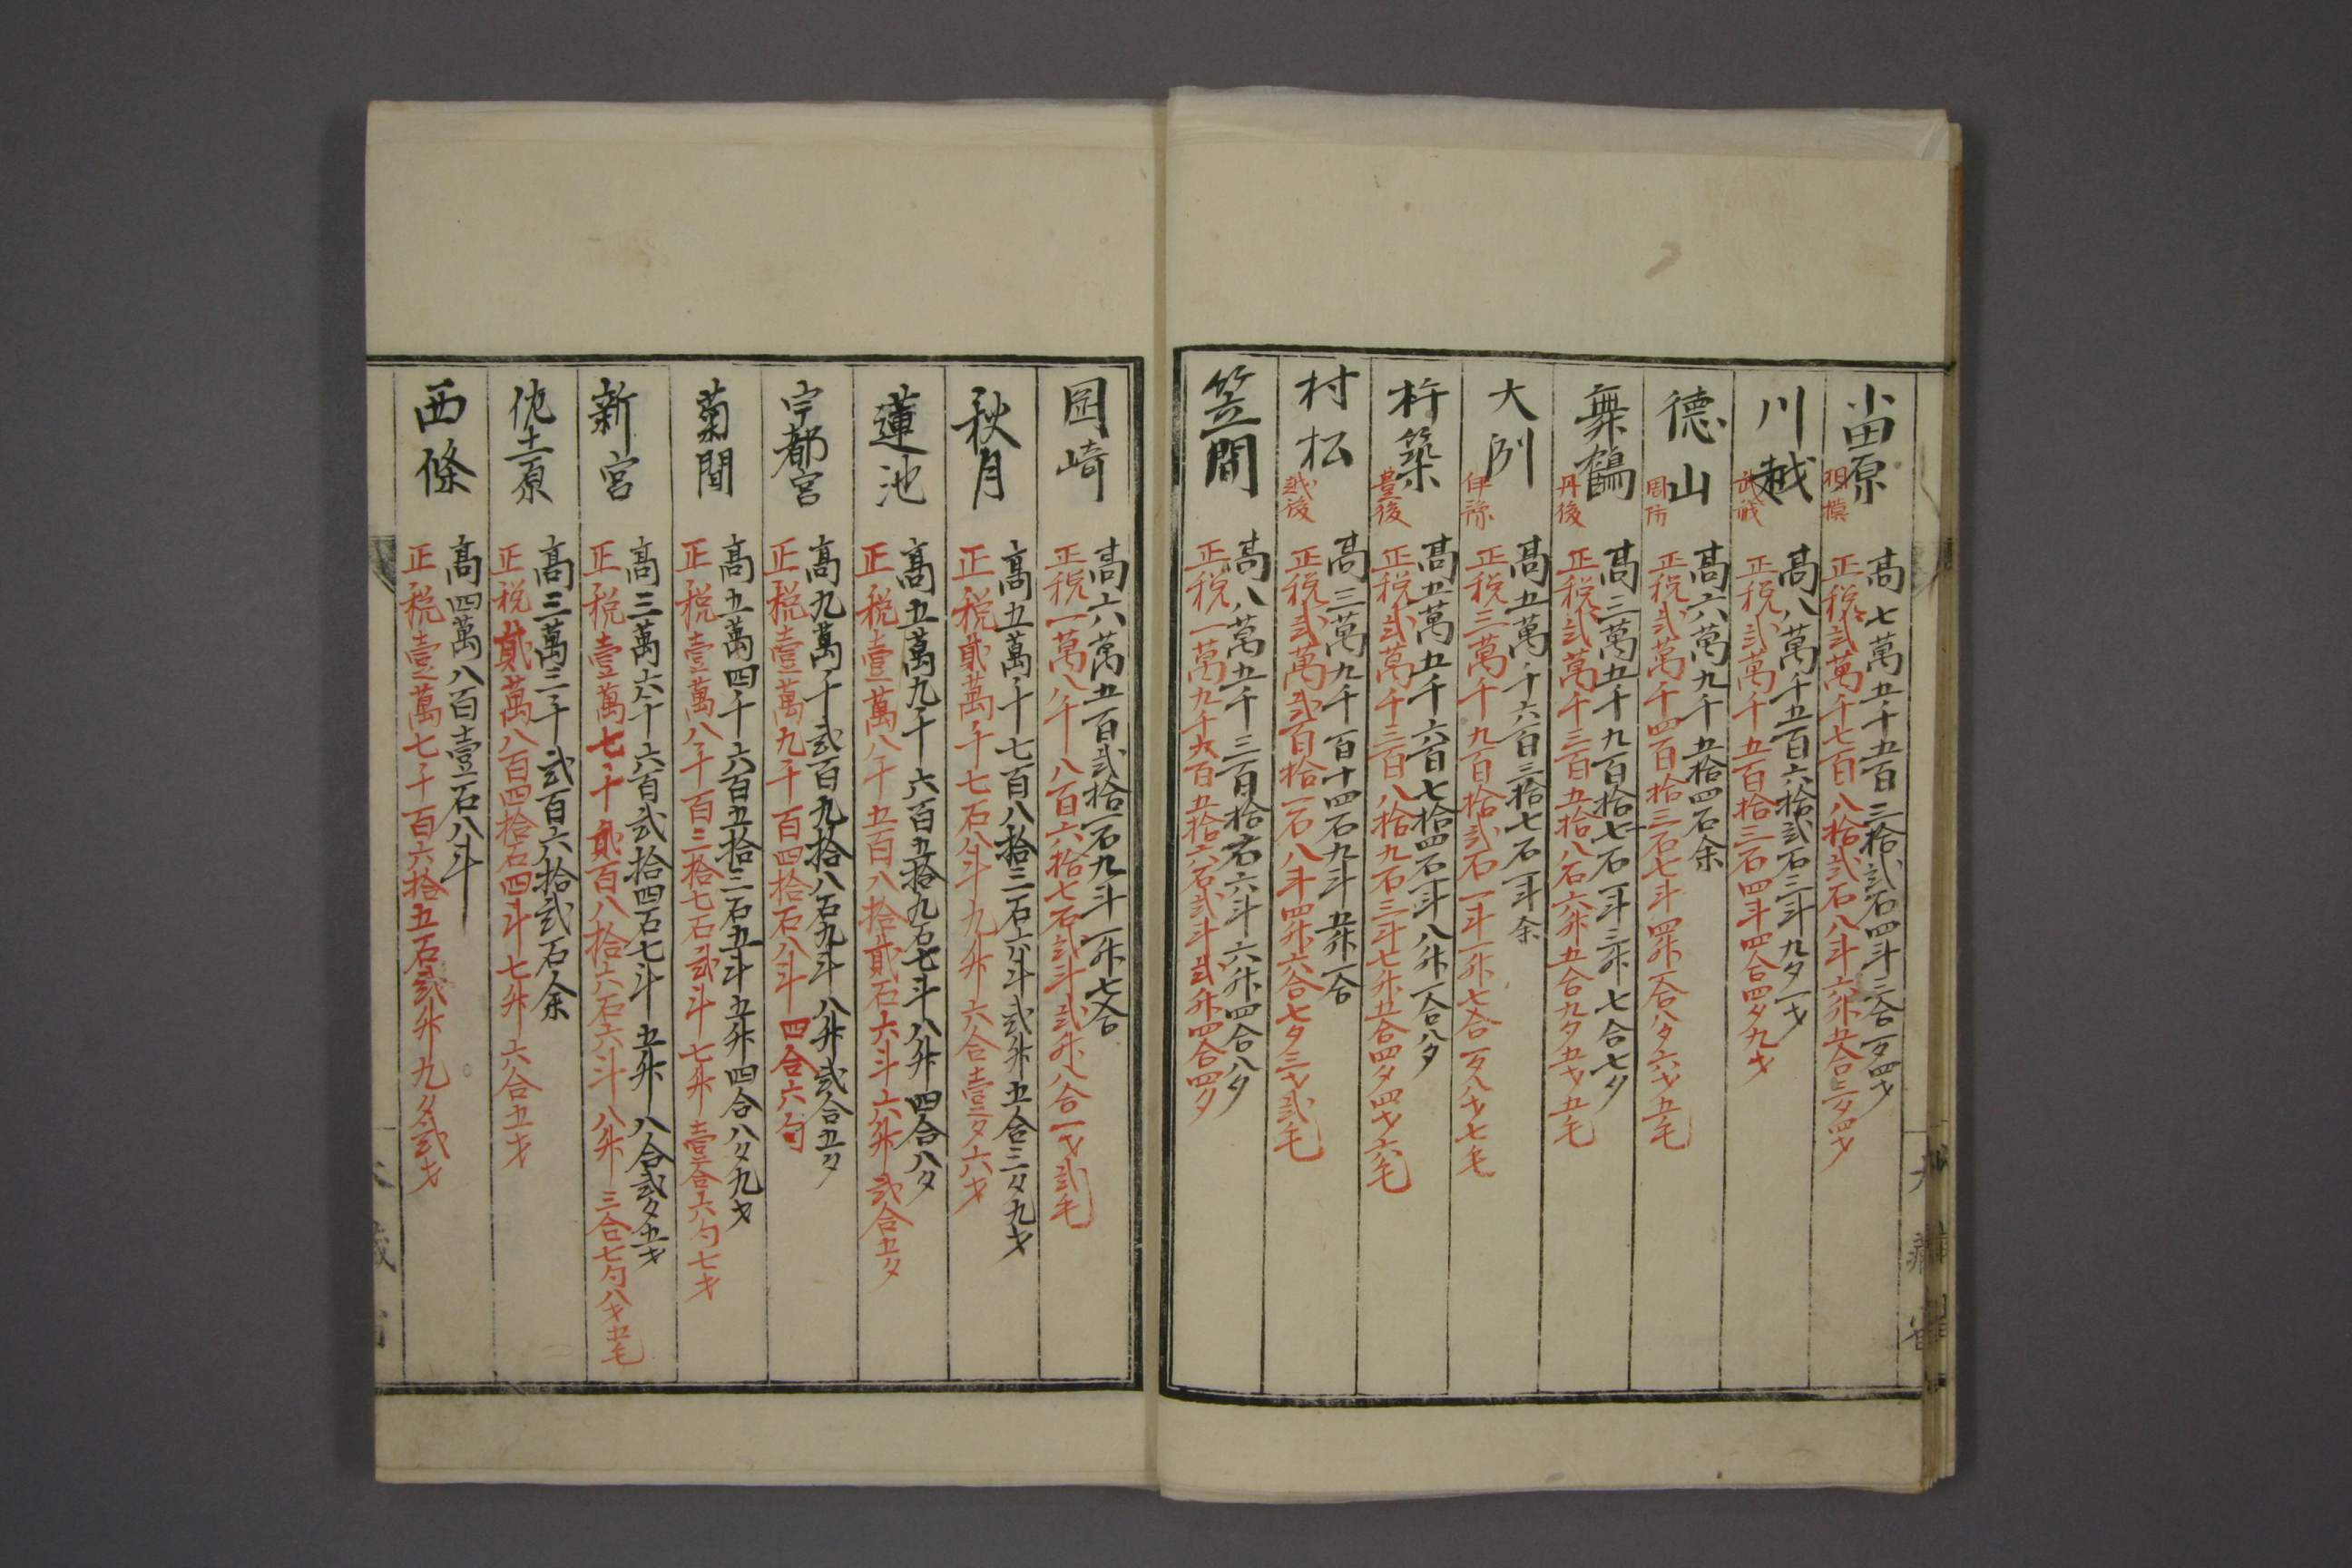 小田原
相摸
高七萬五千五百三拾貳石四斗三合一夕四才
正税貳萬千七百八拾貳石八斗六升五合三夕四才
川越
武蔵
高八萬千五百六拾貳石三斗九夕一才
正税貳萬千五百拾三石四斗四合四夕九才
德山
周防
高六萬九千五拾四石余
正税貳萬千四百拾三石七斗四升一合八夕六才五毛
舞鶴
丹後
高三萬五千九百拾七石一斗三升七合七夕
正税貳萬千三百五拾八石六升五合九夕五才五毛
大洌
伊豫
高五萬千六百三拾七石一斗余
正税三萬千九百拾貳石一斗一升七合一夕八才七毛
杵築
豊後
高五萬五千六百七拾四石一斗八升一合八夕
正税貳萬千三百八拾九石三斗七升五合四夕四才六毛
村松
越後
高三萬九千百十四石九斗五升一合
正税貳萬貳百拾一石八斗四升六合七夕三才貳毛
笠間
高八萬五千三百拾石六斗六升四合八夕
正税一萬九千六百五拾六石貳斗貳升四合四夕
岡崎
高六萬五百貳拾一石九斗一升七合
正税一萬八千八百六拾七石貳斗貳升八合一才貳毛
秋月
高五萬千七百八拾三石六斗貳升五合三夕九才
正税貳萬千七石八斗九升六合壹夕六才
蓮池
高五萬九千六百五拾九石七斗八升四合八夕
正税壹萬八千五百八拾貳石六斗六升貳合五夕
宇都宮
高九萬千貳百九拾八石九斗八升貳合五夕
正税壹萬九千百四拾石八斗四合六勺
菊間
高五萬四千六百五拾三石五斗五升四合八夕九才
正税壹萬八千百三拾七石貳斗七升壹合六勺七才
新宮
高三萬六千六百貳拾四石七斗五升八合貳夕五才
正税壹萬七千貳百八拾六石六斗八升三合七勺八才五毛
佐土原
高三萬三千貳百六拾貳石余
正税貳萬八百四拾石四斗七升六合五才
西條
高四萬八百壹石八斗
正税壹萬七千百六拾五石貳升九夕貳才